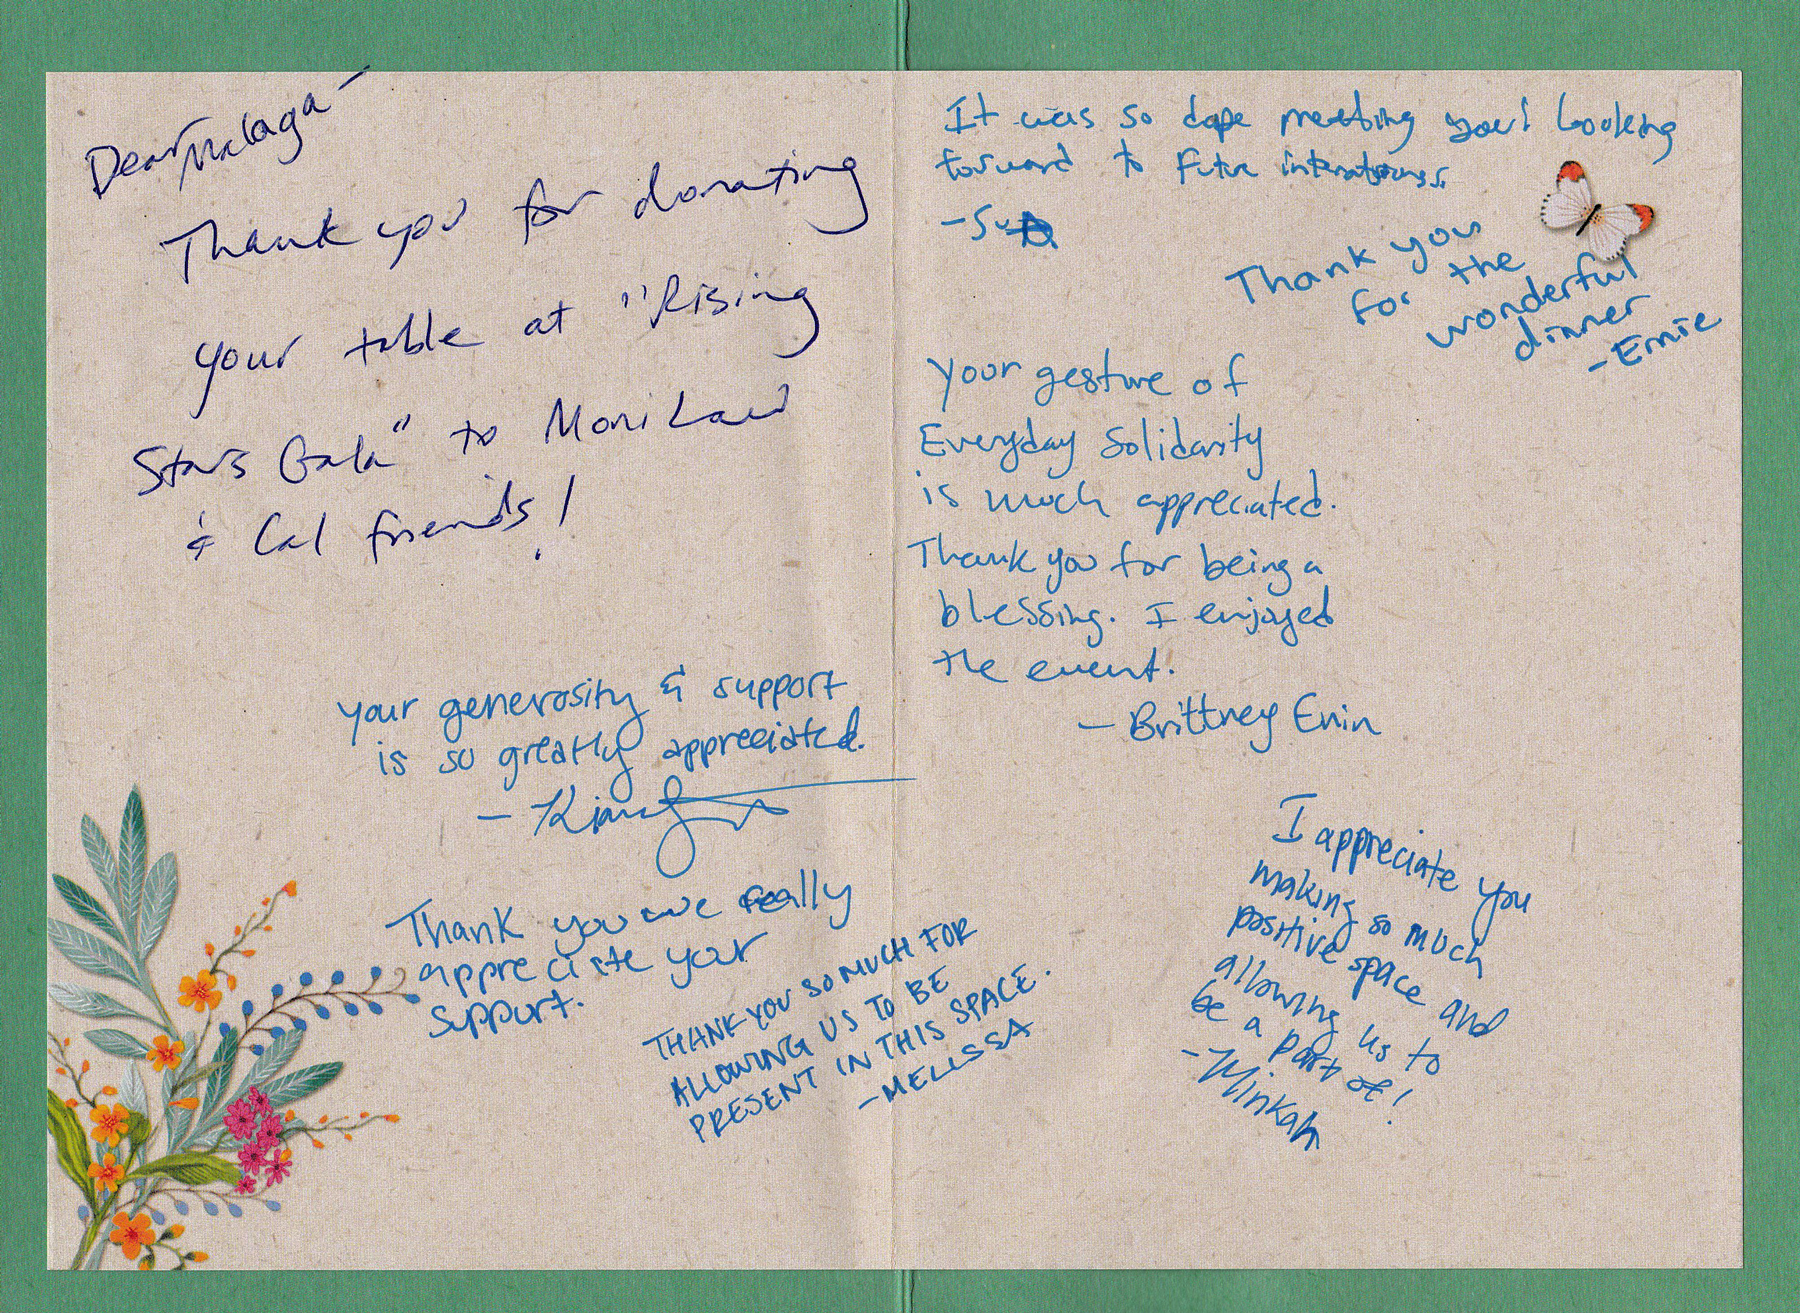 Dear Malaga —
Thank you for donating
your table at "Rising
Stars Gala" to Moni Law
& Cal friends!
your generosity & support
is so greatly appreciated.
Thank you we really
appreciate your
support.
THANK YOU SO MUCH FOR
ALLOWING US TO BE
PRESENT IN THIS SPACE.
-MELISSA
It was so dope meeting you! Looking
forward to future interations.
Thank you
for the
wonderful
dinner
-Ernie
Your gesture of
Everyday Solidarity
is much appreciated.
Thank you for being a
blessing. I enjoyed
the event.
— Brittney Enin
I appreciate you
making so much
positive space and
allowing us to
be a part of!
-Minkah